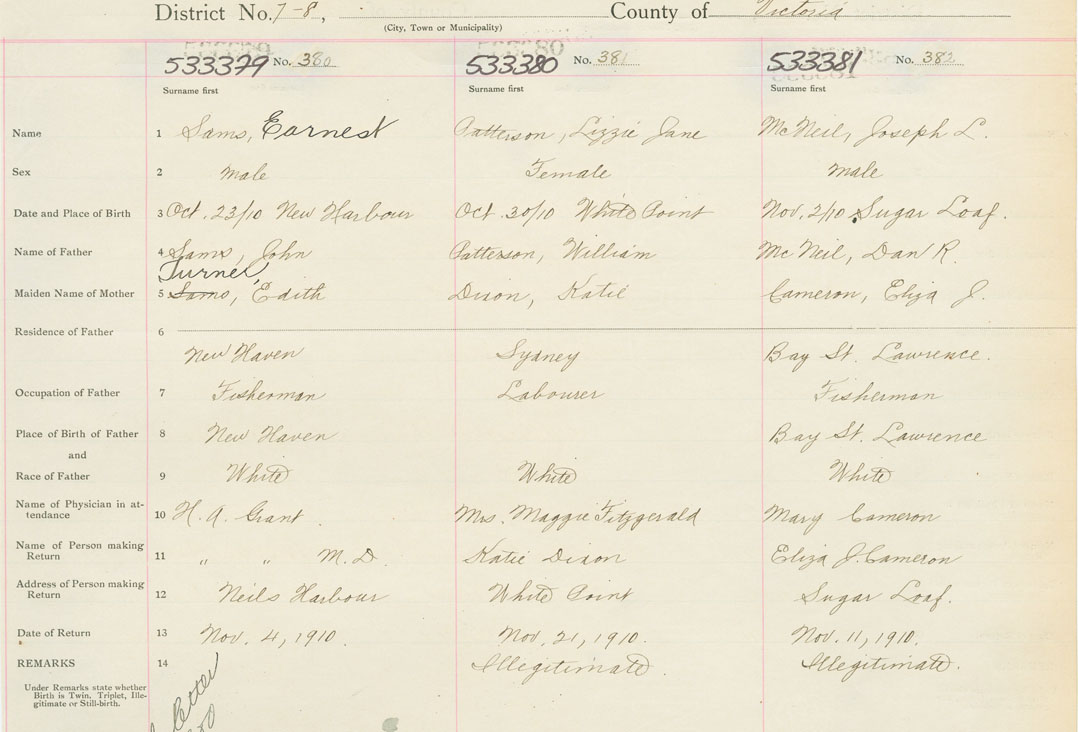 District No. 7-8, County of Victoria
(City, Town or Municipality)
533379 No. 380 533380 No. 381 533381 No. 382
Surname first Surname first Surname first
Name 1 Sams, Earnest Patterson, Lizzie Jane McNeil, Joseph L.
Sex 2 Male Female Male
Date and Place of Birth 3 Oct. 23/10 New Harbour Oct. 30/10 White Point Nov. 2/10 Sugar Loaf.
Name of Father 4 Sams, John Patterson, William McNeil, Dan R.
Turner,
Maiden Name of Mother 5 Sams, Edith Dixon, Katie Cameron, Eliza J.
Residence of Father 6
New Haven Sydney Bay St. Lawrence.
Occupation of Father 7 Fisherman Labourer Fisherman
Place of Birth of Father 8 New Haven Bay St. Lawrence
and
Race of Father 9 White White White
Name of Physician in at-
tendance 10 H. A. Grant. Mrs. Maggie Fitzgerald Mary Cameron
Name of Person making
Return 11 " " M.D. Katie Dixon Eliza J. Cameron
Address of Person making
Return 12 Neils Harbour White Point Sugar Loaf.
Date of Return 13 Nov. 4, 1910. Nov. 21, 1910. Nov. 11, 1910.
REMARKS 14 Illegitimate. Illegitimate.
Under Remarks state whether
Birth is Twin, Triplet, Ille-
gitimate or Still-birth.
letter